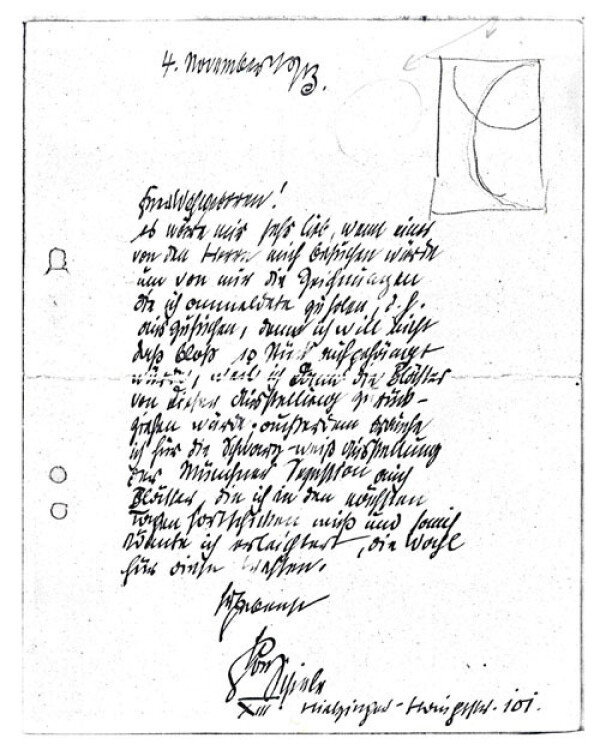 4. November 1913.
Euer Wohlgeboren!
es wäre mir sehr lieb, wenn einer
von den Herren mich besuchen würde
um von mir die Zeichnungen
die ich anmeldete zu holen, d. h.
auszusuchen, denn ich will nicht
daß bloß 10 Stück aufgehängt
würden, weil ich dann die Blätter
von dieser Ausstellung zurück-
ziehen würde; außerdem brauche
ich für die Schwarz-weiß Ausstellung
der Münchner Sezession auch
Blätter, die ich in den nächsten
Tagen fortschicken muß und somit
könnte ich erleichtert, die Wahl
für diese treffen.
Ergebenst
Egon Schiele
XIII Hietzinger-Hauptstr. 101.